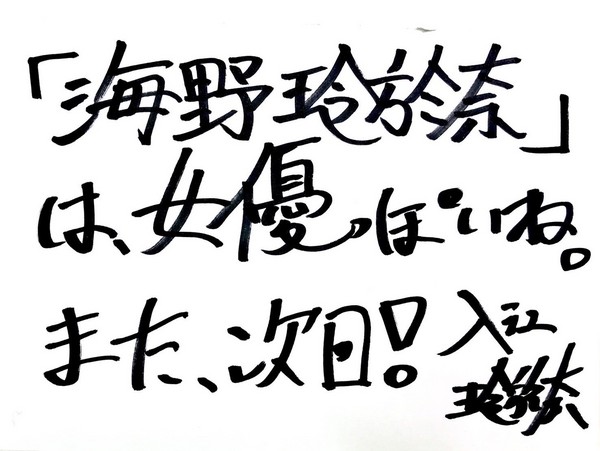 「海野玲於奈」
は、女優っぽいね。
また、次回!
入江
玲於奈